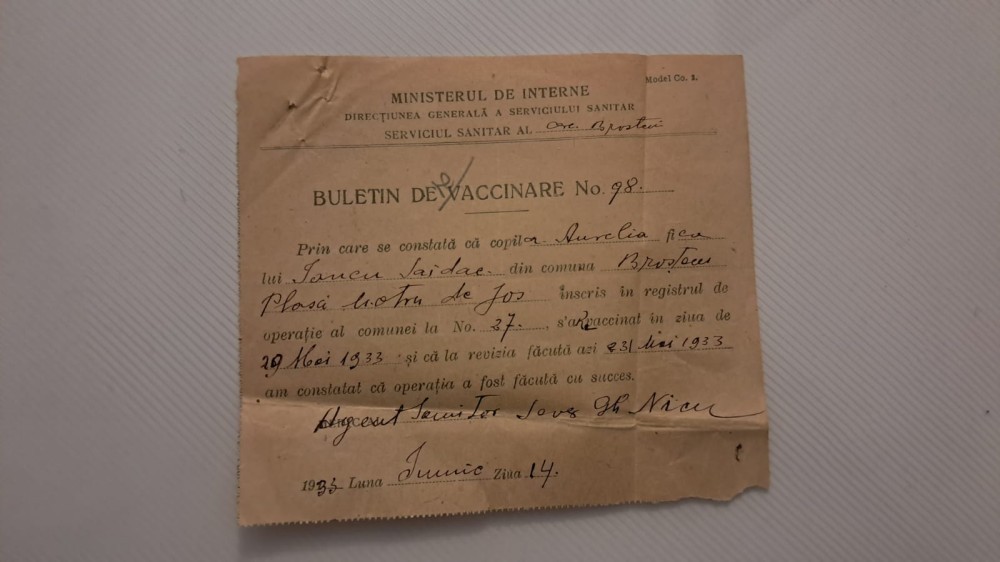 Model Co. 1.
MINISTERUL DE INTERNE
DIRECȚIUNEA GENERALĂ A SERVICIULUI SANITAR
SERVICIUL SANITAR AL Brosteni
BULETIN DE VACCINARE No. 98.
Prin care se constată că copila Aurelia fica
lui Iancu Saidac. din comuna Broșteni
Plasa Motru de Jos înscris în registrul de
operație al comunei la No. 37. s'a vaccinat în ziua de
29 Mai 1933 și că la revizia făcută azi 31 Mai 1933
am constatat că operația a fost făcută cu succes.
Agent Sanitar Gh. Nicu
1933 Luna Iunie Ziua 14.